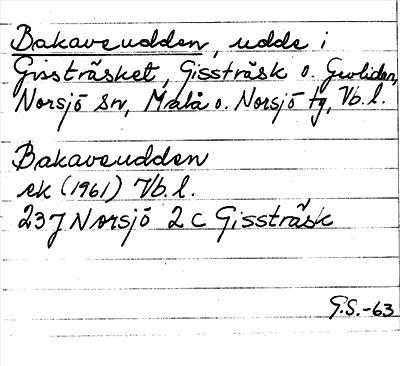 Bakaveudden, udde i
Gissträsket, Gissträsk o. Gumliden,
Norsjö sn, Malå o. Norsjö tg, Vb. l.
Bakaveudden
ek (1961) Vb. l.
23J Norsjö 2 c Gissträsk
G.S.-63